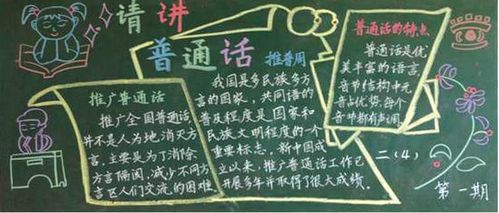 请讲
普通话
推普周
推广普通话
推广全国普通话
并不是人为地消灭方
言,主要是为了消除
方言隔阂,减少不同方
言区人们交流的困难
我国是多民族多方
言的国家,共同语的
普及程度是国家和
民族文明程度的一个
重要标志。新中国成
立以来,推广普通话工作已
开展多年并取得了很大成绩。
普通话的特点
普通话是优
美丰富的语言,
音节结构中元
音占优势,每个
音节都有声调
二(4)
第一期